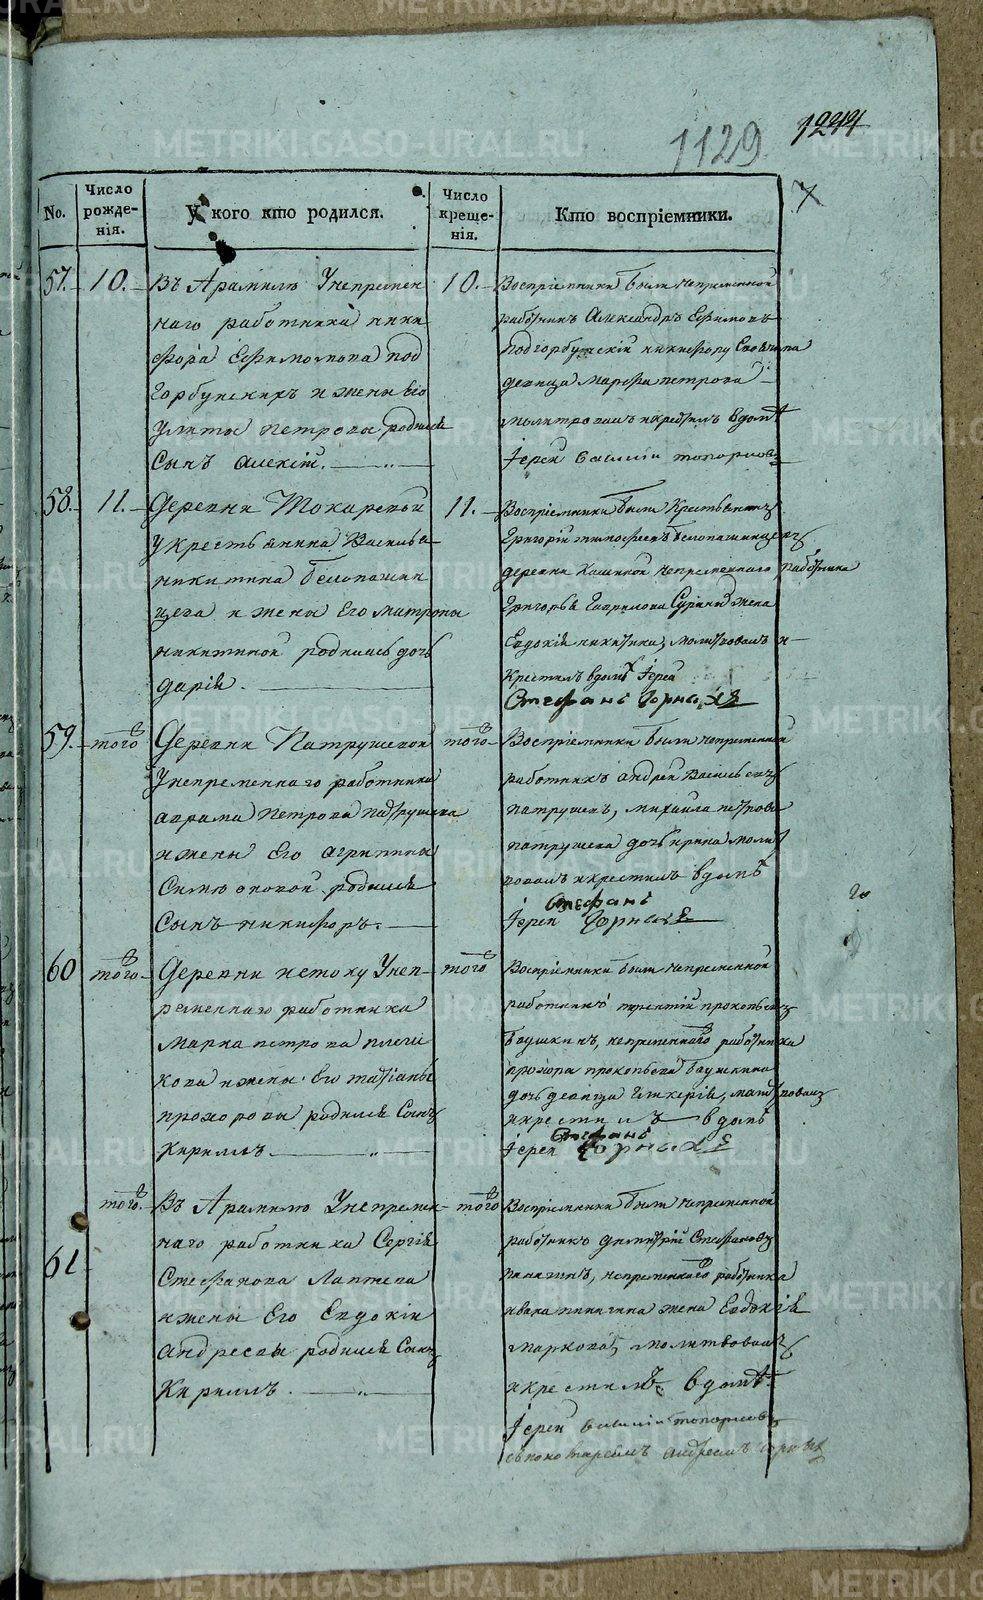 1129
1244
No.
Число рожде-нія.
У кого кто родился.
Число креще-нія.
Кто воспріемники.
57. 10.
Въ Арамилѣ Унепремен
наго работника ники
фора Ефимомова под
горбунскихъ и жены Его
Улиты Петровы родился
Сынъ Алексій.
10.
Воспріемники были непременной
работникъ Александръ Ефимовъ
девица Марфа петрова
молитвовалъ и крестилъ вдомѣ
Іерей Василій топорковъ
58. 11.
Деревни Токаревой
Укрестьянина Василья
никитина белопашин
цева и жены Его матроны
никитиной родилась дочь
дарія.
11.
Воспріемники были Крестьянинъ
Григорій тимофеевъ белопашинцевъ
деревни Кашиной непременнаго работника
Григорья Гаврилова Сурина жена
Евдокія никитина, молитвовалъ и
крестилъ вдомѣ Іерей
Стефанъ Черныхъ
59. того
Деревни Патрушевой
Унепременнаго работника
аврама Петрова патрушева
ижены Его агрипины
Симеоновой родился
Сынъ никифоръ.
того
Воспріемники были непременной
работникъ андрей Васильевъ
патрушевъ, михаила петрова
патрушева дочь ирина молит
вовалъ икрестилъ вдомѣ
Іерей Стефанъ Черныхъ
60 того
Деревни истоку Унеп-
ременнаго работника
Марка петрова плеги
кова ижены Его татіаны
прохоровы родился Сынъ
Кириллъ.
того
Воспріемники были непременной
работникъ терентій прокопьевъ
баушкинъ, непременнаго работника
прохора прокопьева баушкина
дочь девица Гликерія, молитвовалъ
икрестилъ вдомѣ
Іерей Стефанъ Черныхъ
61 того.
Въ Арамилю Унепремен-
наго работника Сергія
Стефанова Лаптева
ижены Его Евдокіи
андреевы родился Сынъ
Кириллъ.
того
Воспріемники были непременной
работникъ димитрій Стефановъ
непременнаго работника
ивана жена Евдокія
Маркова, молитвовалъ
икрестилъ вдомѣ
Іерей Василій топорковъ